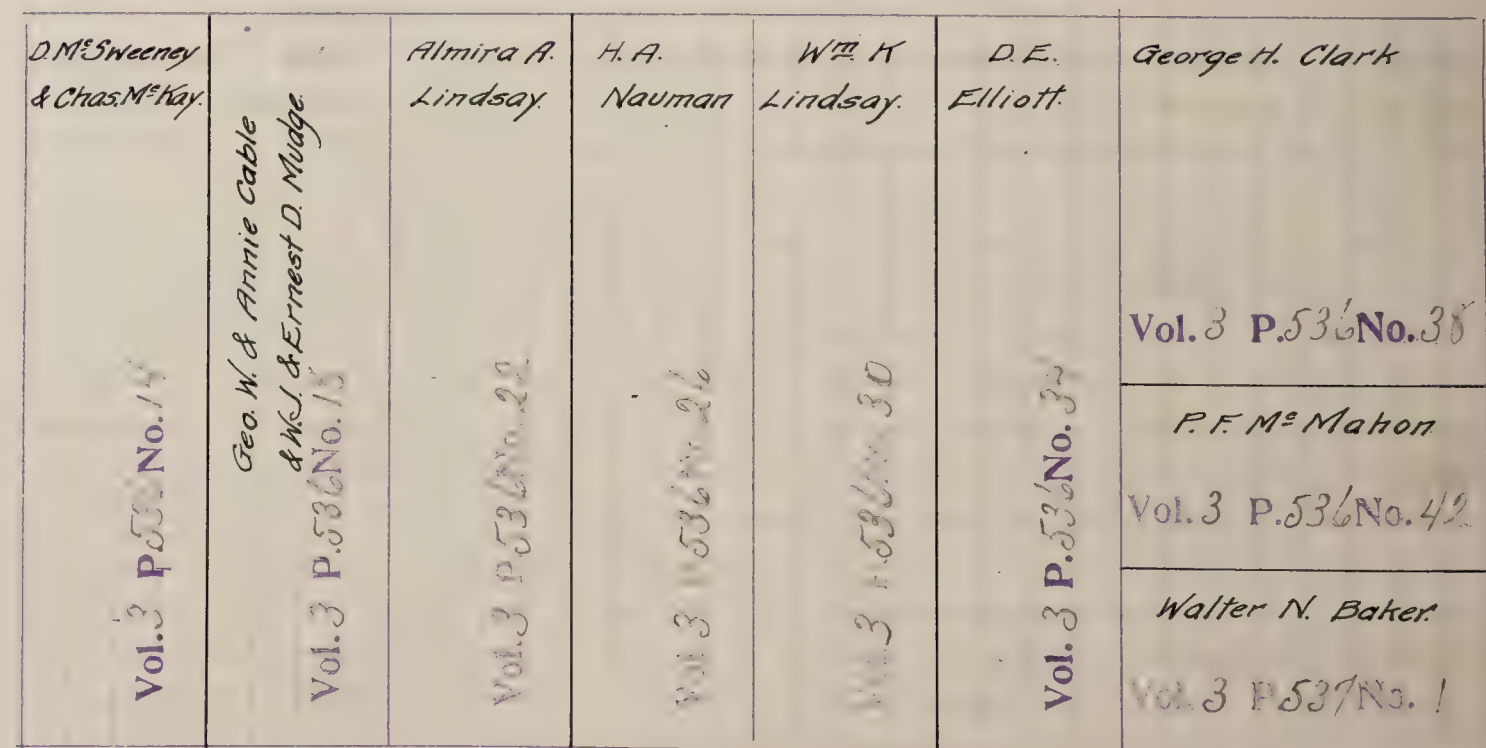 D. McSweeney
& Chas. McKay.
Vol. 3 P. No. 14
Geo. W. & Annie Cable
& W.J. & Ernest D. Mudge.
Vol. 3 P. 536 No. 18
Almira A.
Lindsay.
Vol. 3 P. 536 No. 22
H. A.
Nauman
Vol. 3 P. 536 No. 26
Wm K
Lindsay.
Vol. 3 P. 536 No. 30
D. E.
Elliott.
Vol. 3 P. 536 No. 34
George H. Clark
Vol. 3 P. 536 No. 38
P. F. McMahon
Vol. 3 P. 536 No. 42
Walter N. Baker.
Vol. 3 P. 537 No. 1